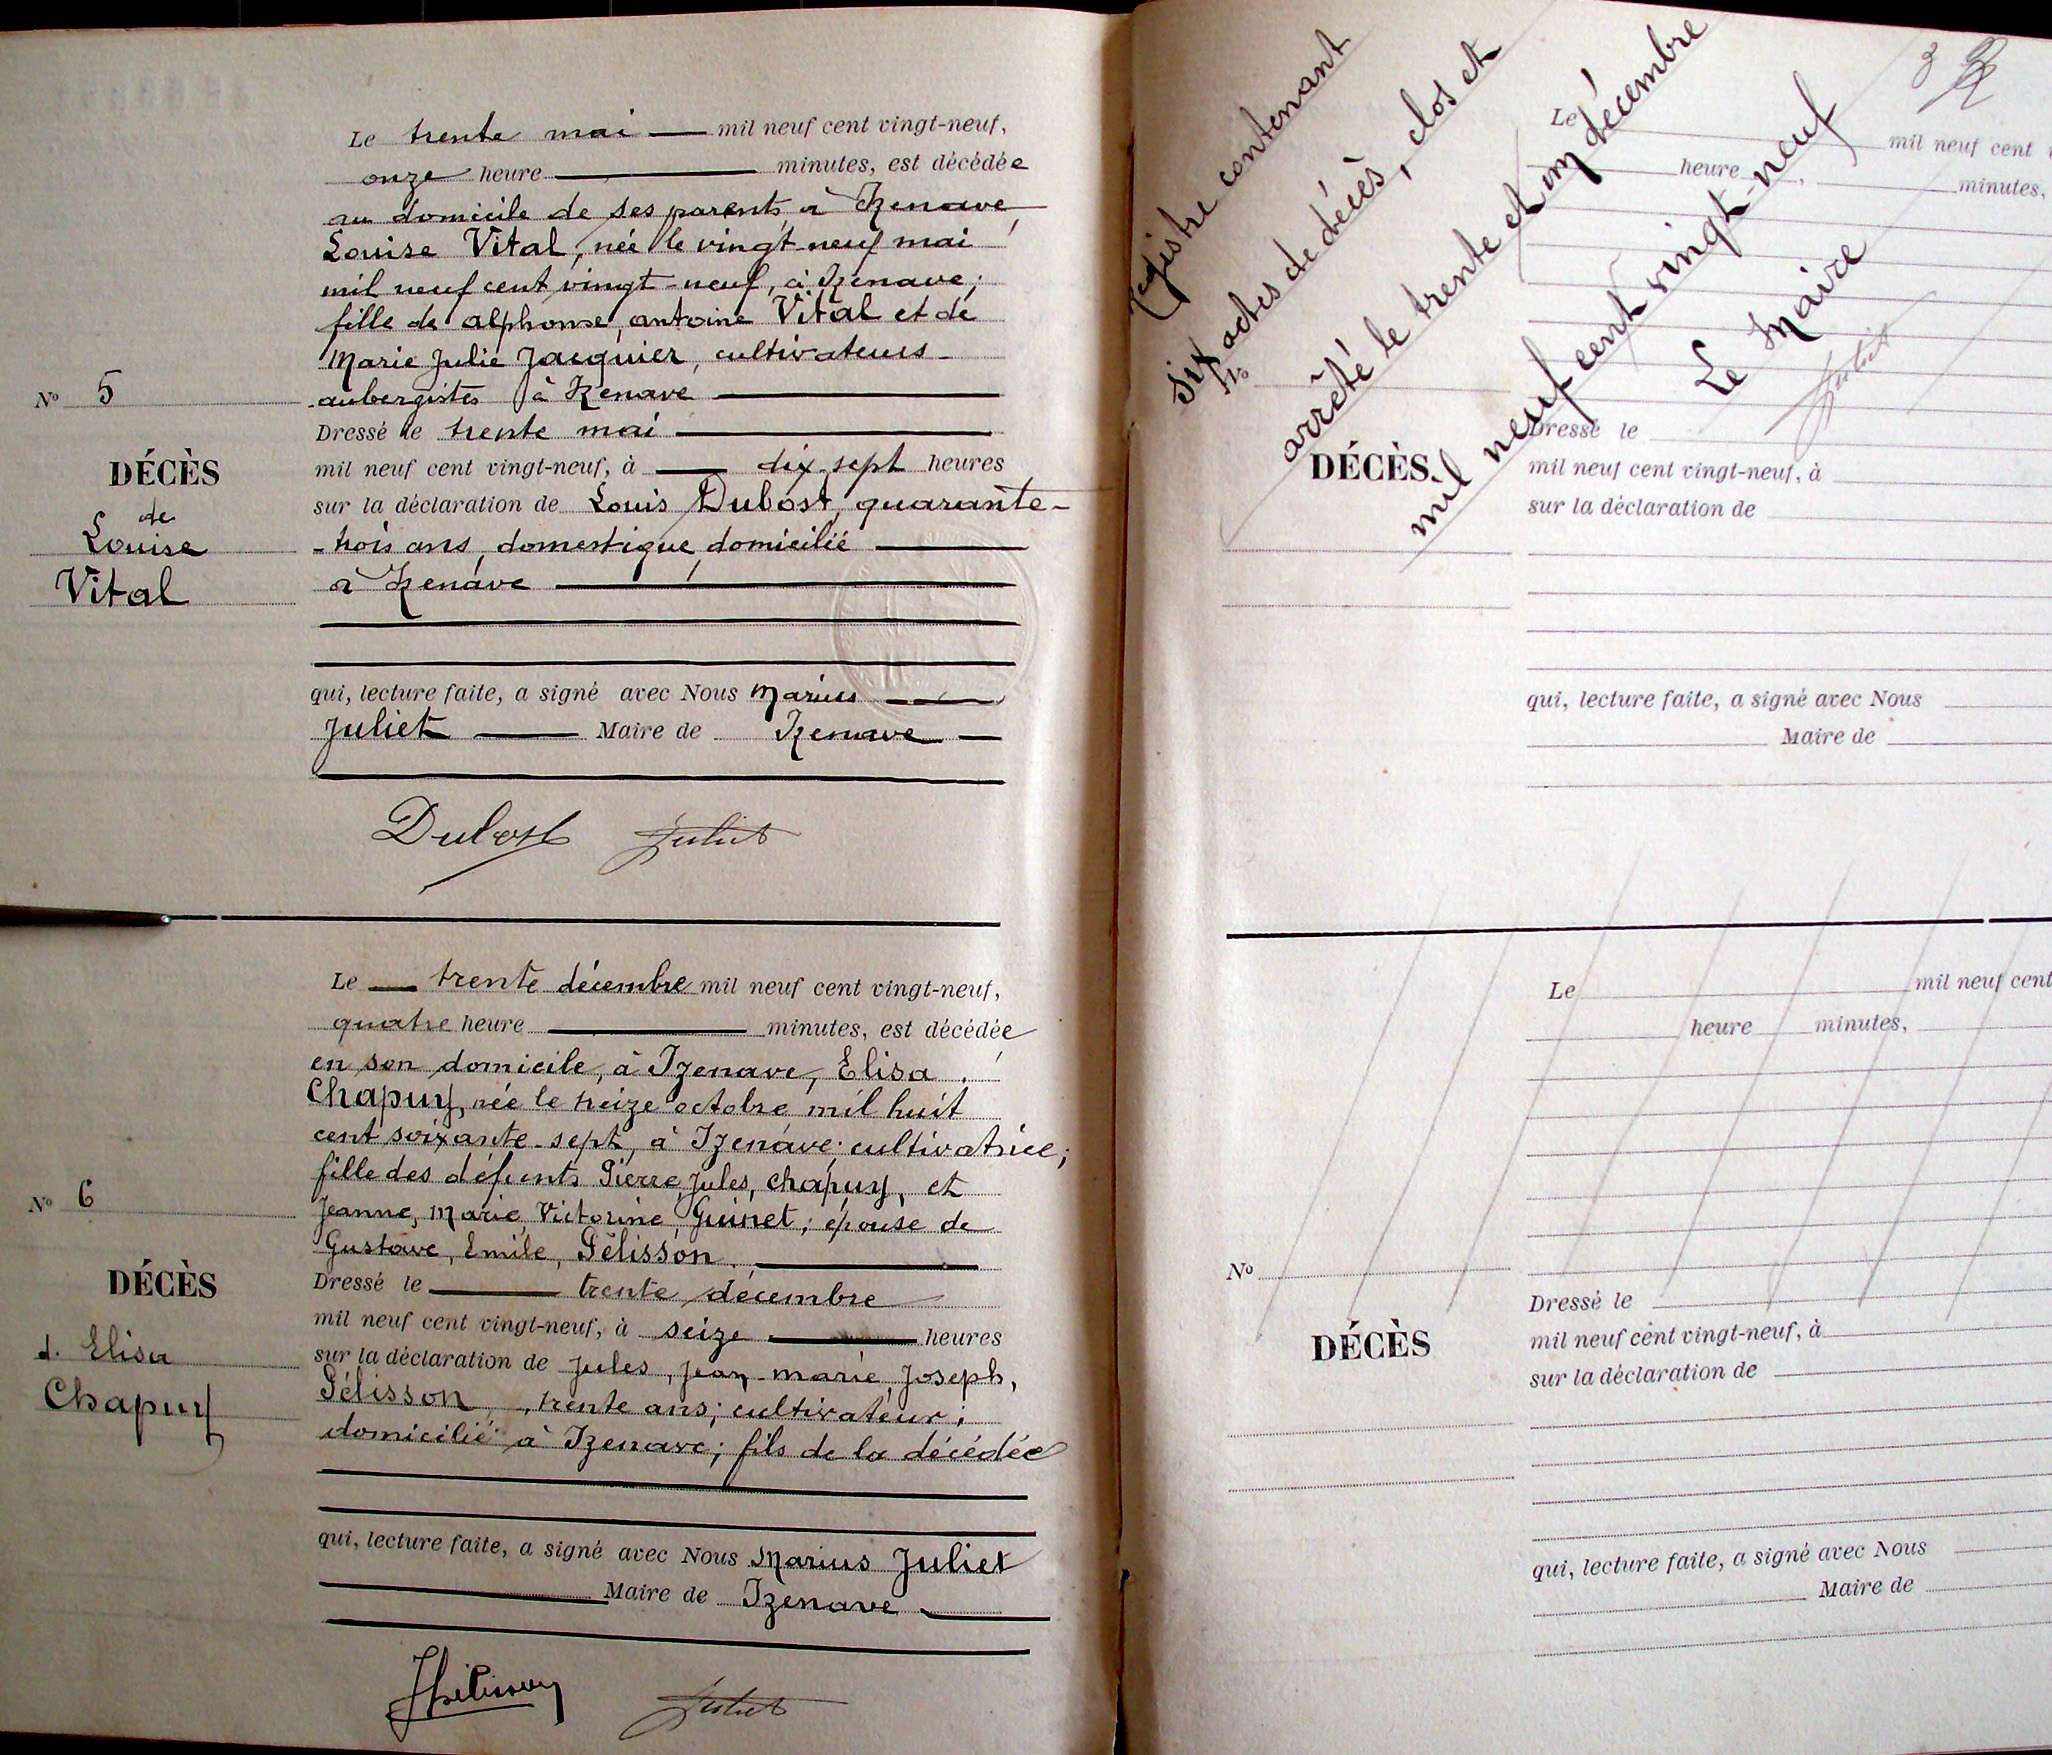 Le trente mai mil neuf cent vingt-neuf,
onze heure minutes, est décédée
au domicile de ses parents à Izenave,
Louise Vital, née le vingt-neuf mai
mil neuf cent vingt-neuf, à Izenave;
fille de alphonse, antoine Vital et de
Marie Julie Jacquier, cultivateurs-
aubergistes à Izenave
Nº 5
Dressé le trente mai
DÉCÈS
mil neuf cent vingt-neuf, à dix-sept heures
de
Louise
Vital
sur la déclaration de Louis Dubost, quarante-
-trois ans, domestique, domicilié
à Izenave
qui, lecture faite, a signé avec Nous Marius
Juliet Maire de Izenave
Dubost Juliet
Le trente décembre mil neuf cent vingt-neuf,
quatre heure minutes, est décédée
en son domicile, à Izenave, Elisa
Chapuy, née le treize octobre mil huit
cent soixante-sept, à Izenave; cultivatrice;
fille des défunts Pierre, Jules, Chapuy, et
Jeanne, Marie, Victorine, Guinet; épouse de
Gustave, Emile, Pélisson.
Nº 6
DÉCÈS
d. Elisa
Chapuy
Dressé le trente décembre
mil neuf cent vingt-neuf, à seize heures
sur la déclaration de Jules, Jean-Marie, Joseph,
Pélisson, trente ans; cultivateur;
domicilié à Izenave; fils de la décédée
qui, lecture faite, a signé avec Nous Marius Juliet
Maire de Izenave
Juliet
3
Registre contenant
six actes de décès, clos et
arrêté le trente et un décembre
mil neuf cent vingt-neuf
Le Maire
Juliet
Le mil neuf cent
heure, minutes,
Nº
DÉCÈS
Dressé le
mil neuf cent vingt-neuf, à
sur la déclaration de
qui, lecture faite, a signé avec Nous
Maire de
Le mil neuf cent
heure minutes,
Nº
DÉCÈS
Dressé le
mil neuf cent vingt-neuf, à
sur la déclaration de
qui, lecture faite, a signé avec Nous
Maire de